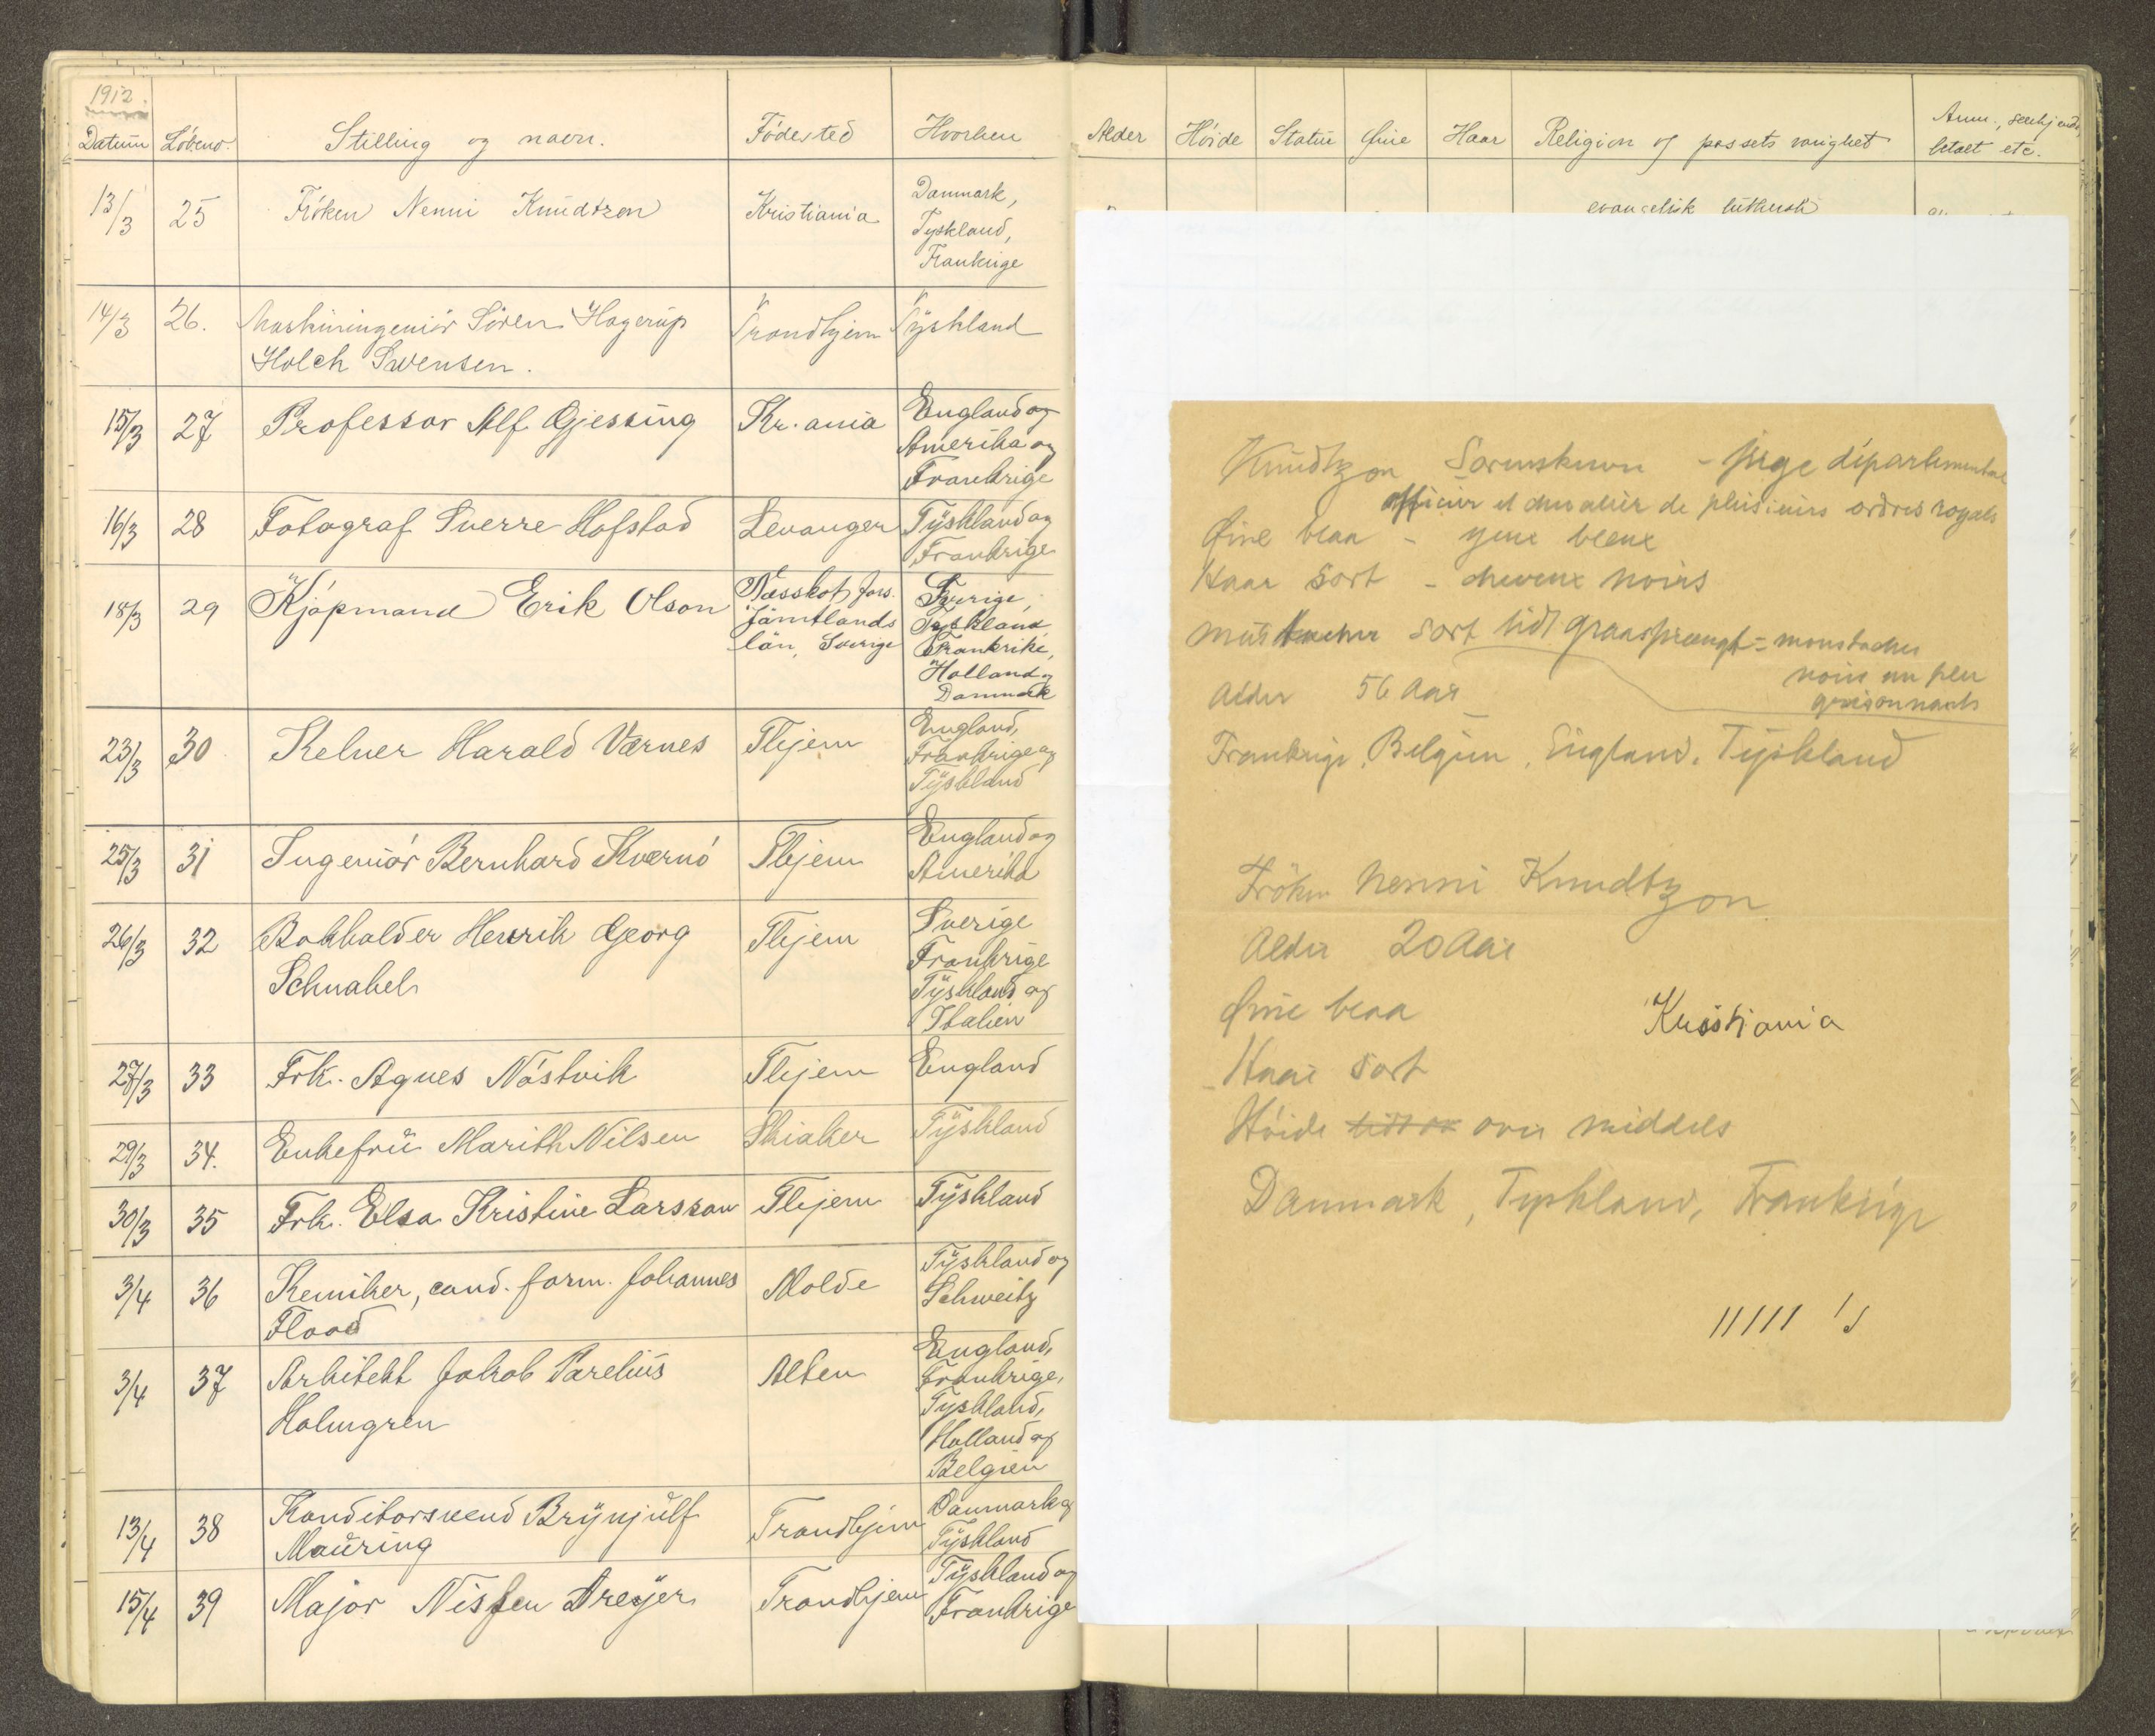 1912.
Datum Löbeno. Stilling og navn. Födested Hvorhen
13/3 25 Fröken Nenni Knudtzon Kristiania Danmark,
Tyskland,
Frankrige
14/3 26. Maskiningeniör Sören Hagerup Trondhjem Tyskland
Holch Svensen.
15/3 27 Professor Alf Gjessing Kr.ania England og
Amerika og
Frankrige
16/3 28 Fotograf Sverre Hofstad Levanger Tyskland og
Frankrige
18/3 29 Kjöpmand Erik Olson Næsskot fors. Sverige,
Jämtlands Tyskland
län, Sverige Frankrike,
Holland og
Danmark
23/3 30 Kelner Harald Værnes Thjem England,
Frankrige og
Tyskland
25/3 31 Ingeniör Bernhard Kvernö Thjem England og
Amerika
26/3 32 Bokholder Henrik Georg Thjem Sverige
Schnabel Frankrige
Tyskland og
Italien
27/3 33 Frk. Agnes Nöstvik Thjem England
29/3 34. Enkefru Marith Nilsen Skiaker Tyskland
30/3 35 Frk. Elsa Kristine Larsson Thjem Tyskland
3/4 36 Kemiker, cand. farm. Johannes Molde Tyskland og
Flood Schweitz
3/4 37 Arkitekt Jakob Parelius Alten England,
Holmgren Frankrige,
Tyskland,
Holland og
Belgien
13/4 38 Konditorsvend Brynjulf Trondhjem Danmark og
Mauring Tyskland
15/4 39 Major Nissen Dreyer Trondhjem Tyskland og
Frankrige
Alder Höide Statur Øine Haar Religion og passets varighet Anm.,
betalt etc.
evangelisk luthersk
Knudtzon Sorenskriver - juge départemental
officier et chevalier de plusieurs ordres royals
Øine blaa - yeux bleux
Haar sort - cheveux noirs
mustacher sort lidt graasprængt - moustaches
noirs un peu
grisonnants
Alder 56 Aar
Frankrige, Belgien, England, Tyskland
Fröken Nenni Knudtzon
Alder 20 Aar
Øine blaa
Kristiania
Haar sort
Höide over middels
Danmark, Tyskland, Frankrige